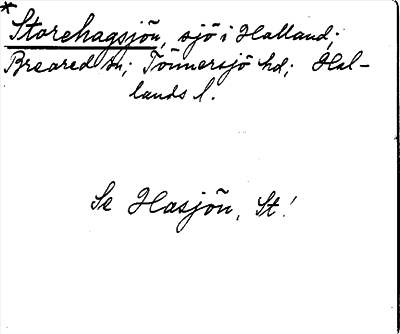 *
Storehagsjön, sjö i Halland;
Breared sn; Tönnersjö hd; Hal-
lands l.
Se Hasjön, St!